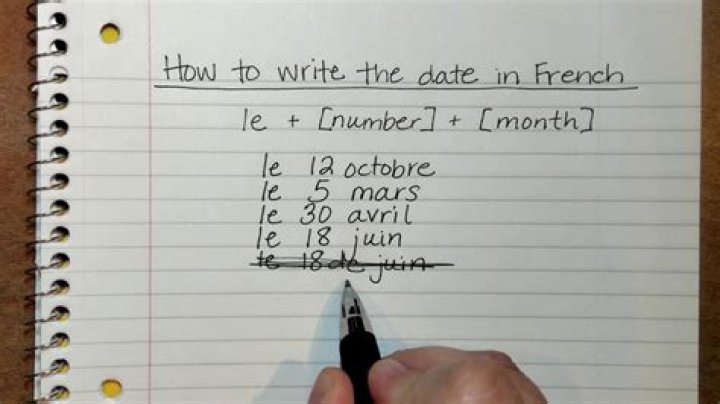 How to write the date in French
le + [number] + [month]
le 12 octobre
le 5 mars
le 30 avril
le 18 juin
le 18 de juin